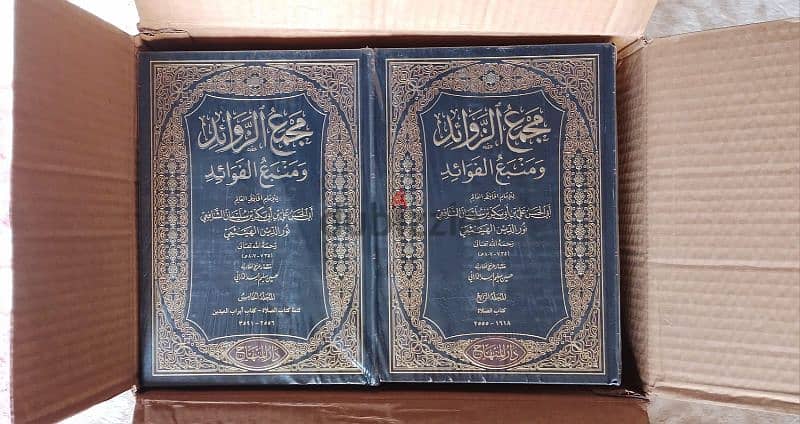 مجمع الزوائد
ومنبع الفوائد
للإمام الحافظ العالم
أبي الحسن علي بن أبي بكر بن سليمان الشافعي
نور الدين الهيثمي
رحمه الله تعالى
(٧٣٥-٨٠٧هـ)
حسين سليم أسد الداراني
المجلد الرابع
كتاب الصلاة
١٦١٨ - ٢٥٥٥
دار المنهاج
مجمع الزوائد
ومنبع الفوائد
للإمام الحافظ العالم
أبي الحسن علي بن أبي بكر بن سليمان الشافعي
نور الدين الهيثمي
رحمه الله تعالى
(٧٣٥-٨٠٧هـ)
حسين سليم أسد الداراني
المجلد الخامس
تتمة كتاب الصلاة - كتاب أبواب العيدين
٢٥٥٦ - ٣٥٩١
دار المنهاج